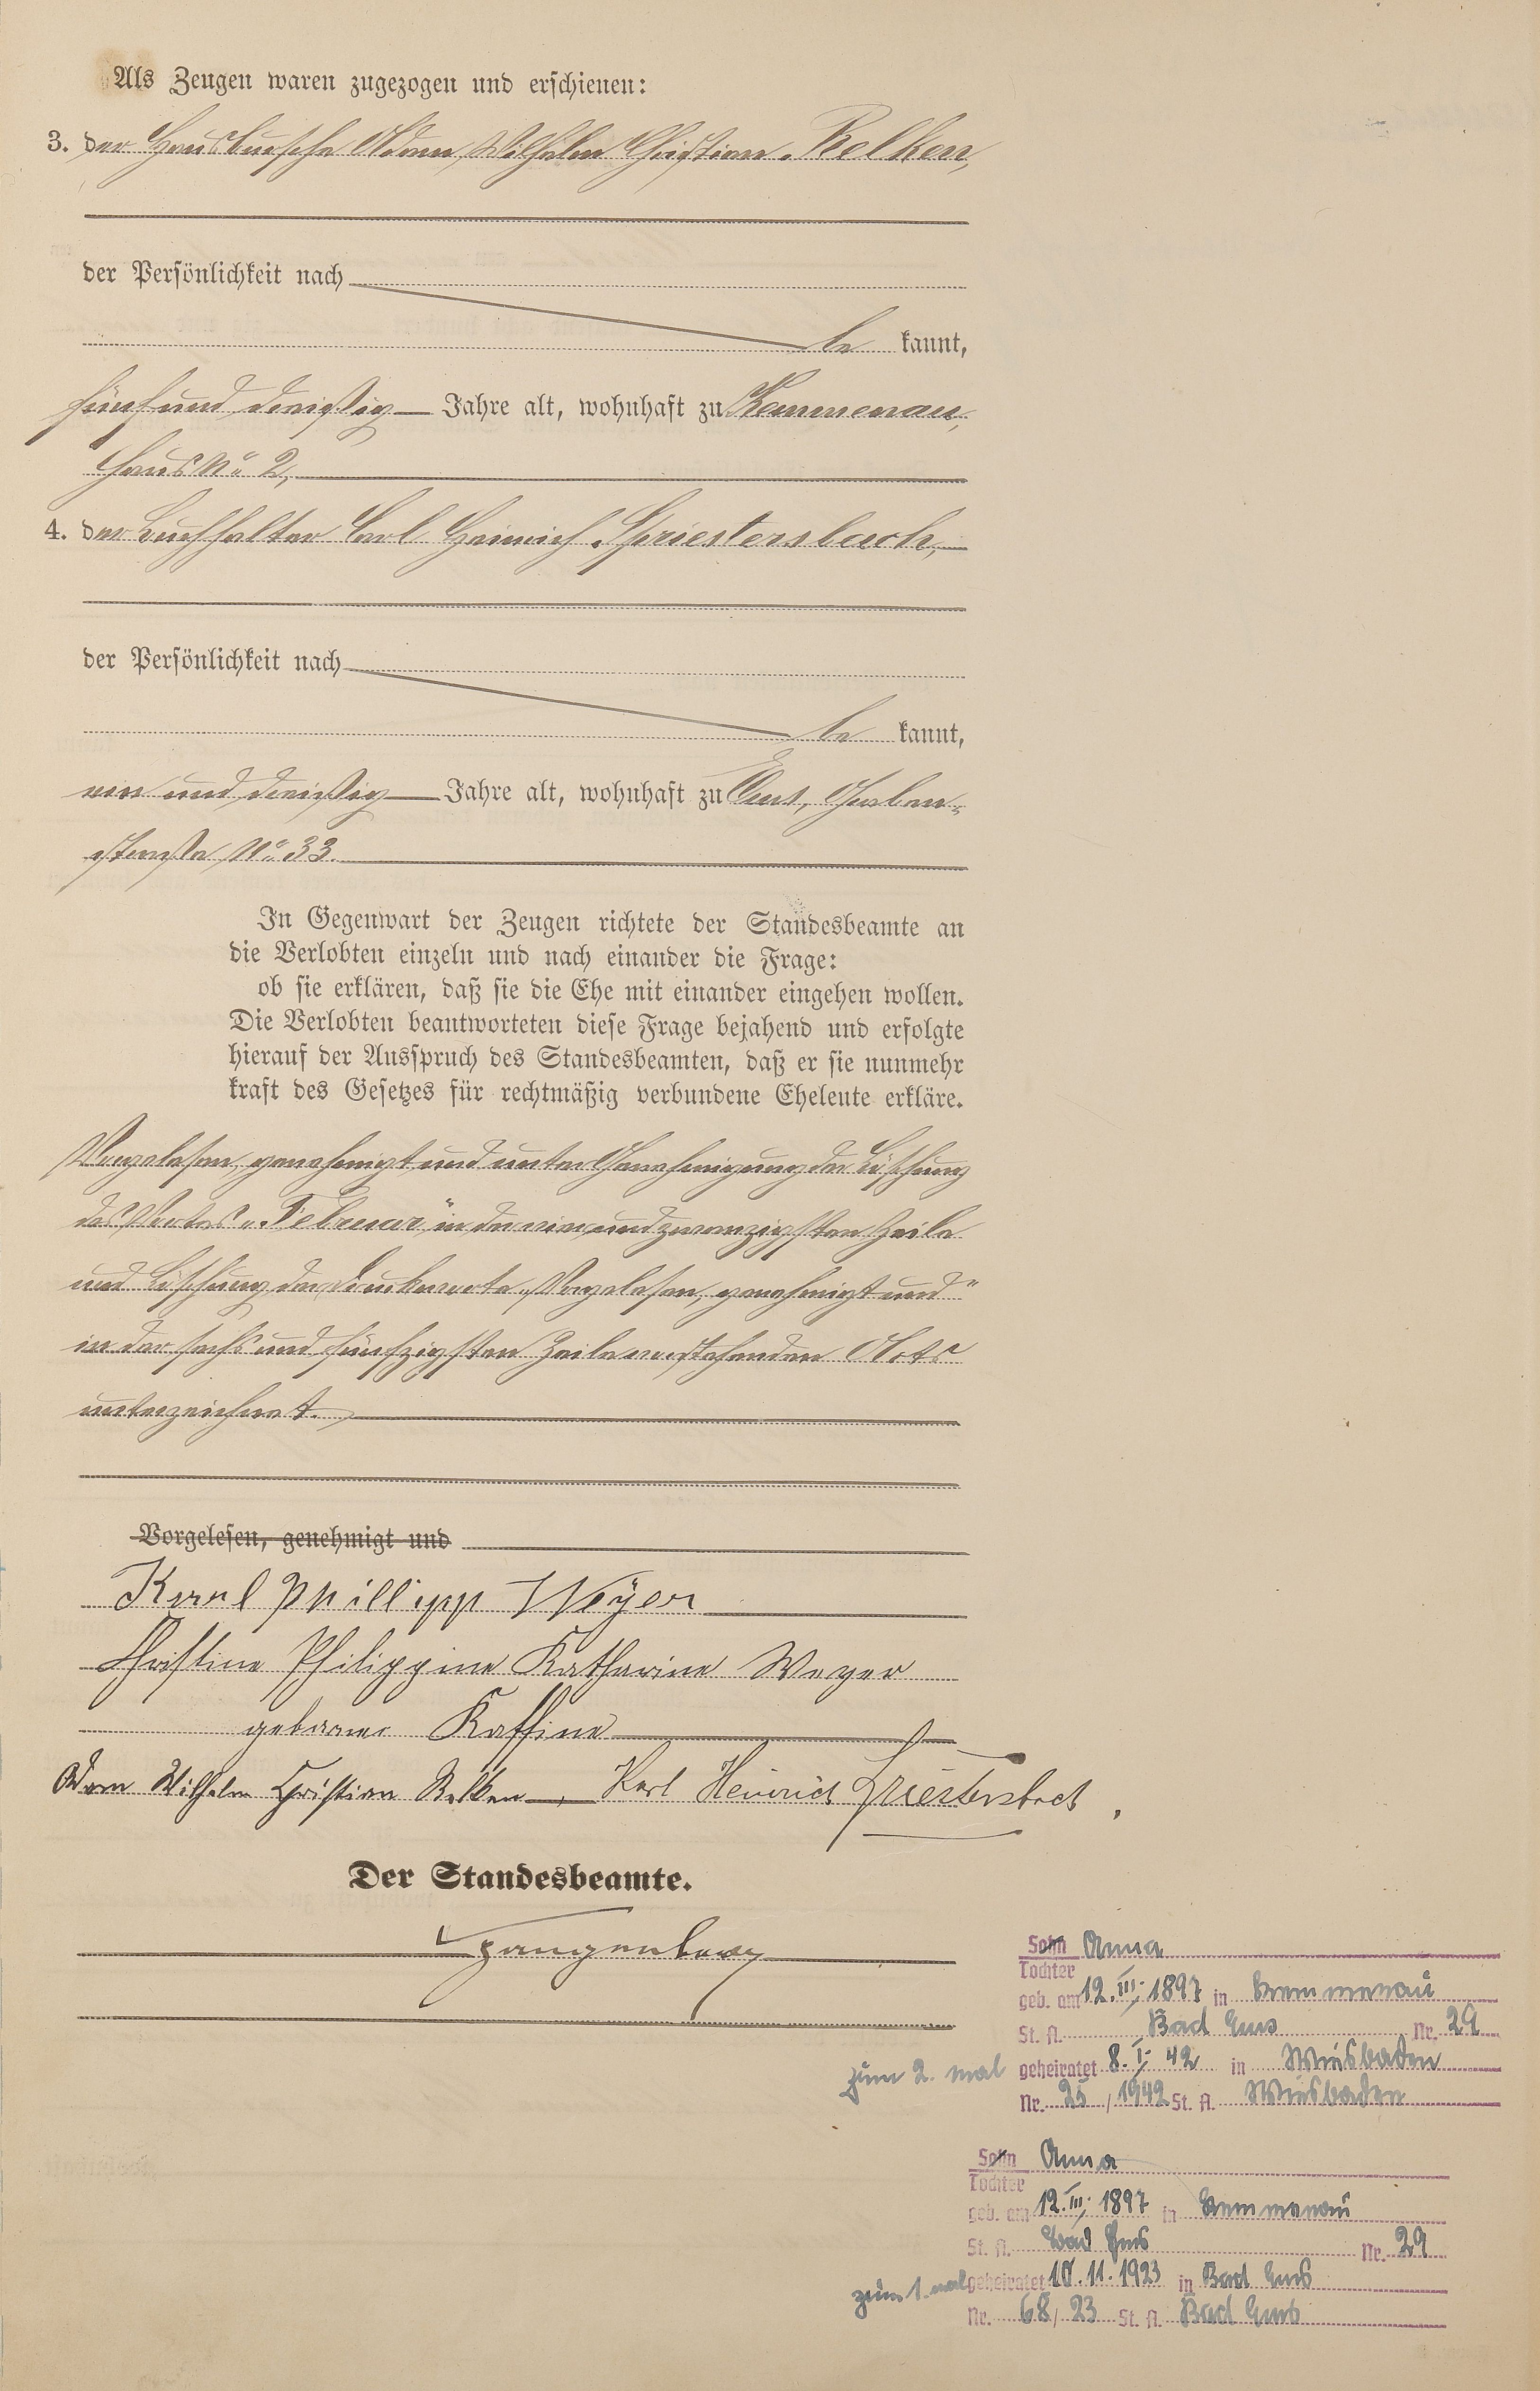 Als Zeugen waren zugezogen und erschienen:
3. der Hausbursche Adam Wilhelm Christian Relken,
der Persönlichkeit nach
be kannt,
fünf und dreißig Jahre alt, wohnhaft zu Kemmenau,
Haus No 2,
4. der Buchhalter Carl Heinrich Spriestersbach,
der Persönlichkeit nach
be kannt,
ein und dreißig Jahre alt, wohnhaft zu Ems, Graben-
straße No 33.
In Gegenwart der Zeugen richtete der Standesbeamte an
die Verlobten einzeln und nach einander die Frage:
ob sie erklären, daß sie die Ehe mit einander eingehen wollen.
Die Verlobten beantworteten diese Frage bejahend und erfolgte
hierauf der Ausspruch des Standesbeamten, daß er sie nunmehr
kraft des Gesetzes für rechtmäßig verbundene Eheleute erkläre.
Vorgelesen, genehmigt und unter Genehmigung der Löschung
des Wortes "Februar" in der einundzwanzigsten Zeile
und Löschung der Druckworte "Vorgelesen, genehmigt und"
in der sechs und fünfzigsten Zeile vorstehenden Akts
unterzeichnet.
Vorgelesen, genehmigt und
Karl Phillipp Weÿer
Christine Philippine Katharine Weyer
geborene Kaffine
Adam Wilhelm Christian Relken, Karl Heinrich Spriestersbach.
Der Standesbeamte.
Spangenberg
Sohn Anna
Tochter
geb. am 12. III. 1897 in Kemmenau
St. A. Bad Ems Nr. 29
zum 2. mal geheiratet 8. I. 42 in Wiesbaden
Nr. 25 / 1942 St. A. Wiesbaden
Sohn Anna
Tochter
geb. am 12. III. 1897 in Kemmenau
St. A. Bad Ems Nr. 29
zum 1. mal geheiratet 10. 11. 1923 in Bad Ems
Nr. 68 / 23 St. A. Bad Ems